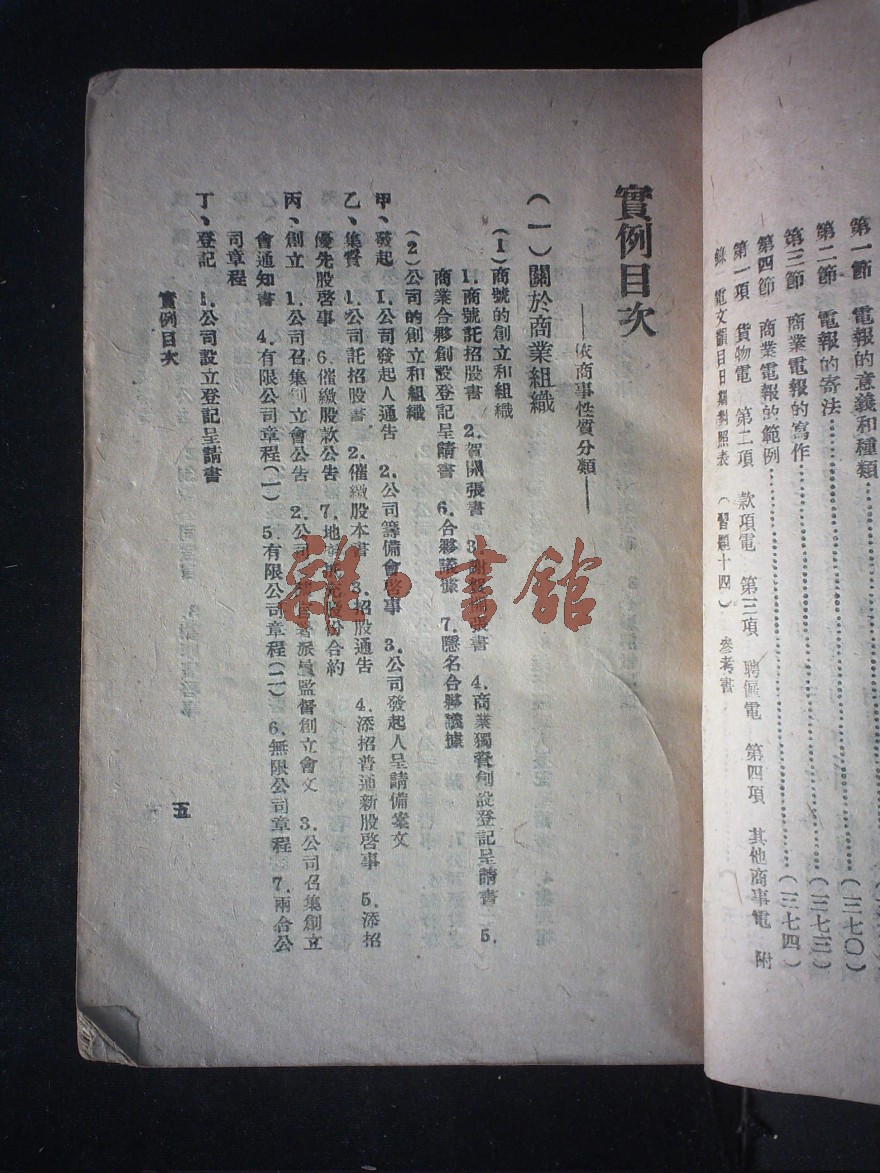 第一節　電報的意義和種類…………（三七〇）
第二節　電報的寄法…………（三七三）
第三節　商業電報的寫作…………（三七四）
第四節　商業電報的範例
第一項　貨物電　第二項　款項電　第三項　聘僱電　第四項　其他商事電　附
錄　電文韻目日期對照表　（習題十四）　參考書
實例目次
——依商事性質分類——
（一）關於商業組織
(1)商號的創立和組織
1.商號託招股書　2.賀開張書　3.謝賀開張書　4.商業獨資創設登記呈請書　5.
商業合夥創設登記呈請書　6.合夥議據　7.隱名合夥議據
(2)公司的創立和組織
甲、發起　1.公司發起人通告　2.公司籌備會啓事　3.公司發起人呈請備案文
乙、集資　1.公司託招股書　2.催繳股本書　3.招股通告　4.添招普通新股啓事　5.添招
優先股啓事　6.催繳股款公告　7.地股份合約
丙、創立　1.公司召集創立會公告　2.公司派員監督創立會文　3.公司召集創立
會通知書　4.有限公司章程(一)　5.有限公司章程(二)　6.無限公司章程　7.兩合公
司章程
丁、登記　1.公司設立登記呈請書
實例目次
五
雜·書館